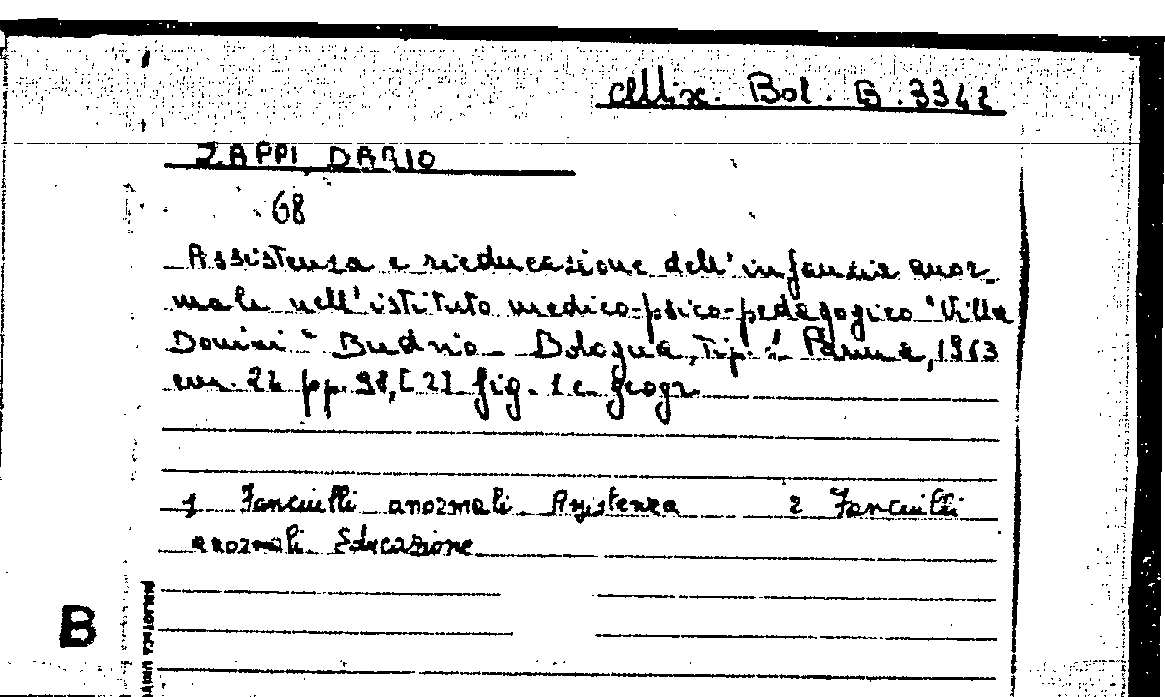 Mix. Bol. B. 3342
ZAPPI DARIO
68
Assistenza e rieducazione dell'infanzia anor-
male nell'istituto medico-psico-pedagogico "Villa
Donini" Budrio - Bologna, Tip. Parma, 1963
cm. 22 pp. 98, [2] fig. 1 c. geogr.
1 Fanciulli anormali Assistenza 2 Fanciulli
anormali Educazione
B
BIBLIOTECA